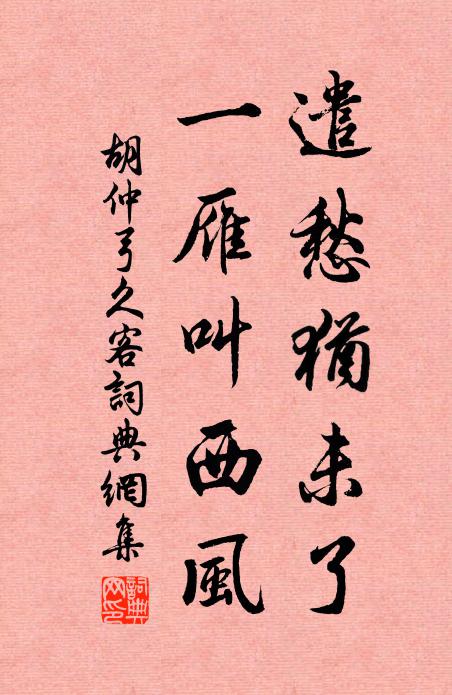 遣愁猶未了
一雁叫西風
胡仲弓久客詞典網集
詞典網印